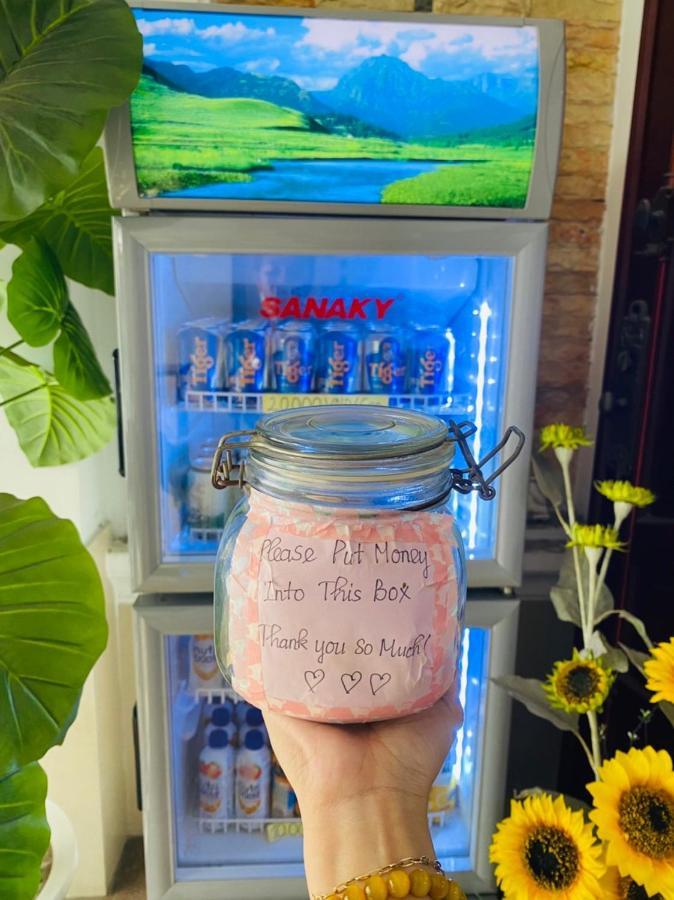 SANAKY
Tiger Tiger Tiger Tiger Tiger Tiger
20.000 VND/
Please Put Money
Into This Box
Thank you So Much!